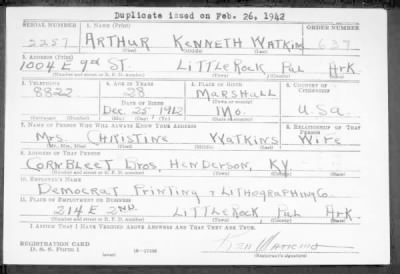 Duplicate issued on Feb. 26, 1942
SERIAL NUMBER 1. NAME (Print) ORDER NUMBER
2257 ARTHUR KENNETH WATKINS 637
(First) (Middle) (Last)
2. ADDRESS (Print)
1004 E 9th ST. LITTLE ROCK Pul Ark.
(Number and street or R. F. D. number) (Town) (County) (State)
3. TELEPHONE 4. AGE IN YEARS 5. PLACE OF BIRTH 6. COUNTRY OF CITIZENSHIP
8822 28 MARSHALL
DATE OF BIRTH (Town or county)
Dec. 25 1912 Mo. U.S.a.
(Mo.) (Day) (Yr.) (State or country)
7. NAME OF PERSON WHO WILL ALWAYS KNOW YOUR ADDRESS 8. RELATIONSHIP OF THAT PERSON
Mrs CHRISTINE WATKINS WIFE
(Mr., Mrs., Miss) (First) (Middle) (Last)
9. ADDRESS OF THAT PERSON
CORNBLEET BROS, HENDERSON, KY.
(Number and street or R. F. D. number) (Town) (County) (State)
10. EMPLOYER'S NAME
DEMOCRAT PRINTING & LITHOGRAPHING CO
11. PLACE OF EMPLOYMENT OR BUSINESS
214 E 2ND. LITTLE ROCK, Pul Ark.
(Number and street or R. F. D. number) (Town) (County) (State)
I AFFIRM THAT I HAVE VERIFIED ABOVE ANSWERS AND THAT THEY ARE TRUE.
REGISTRATION CARD
D. S. S. Form 1 16-17105 Ken Watkins
(over) (Registrant's signature)